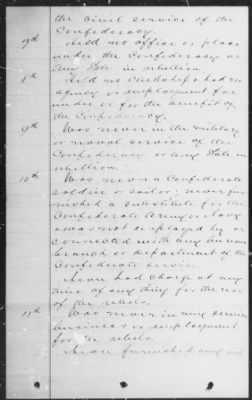 the civil service of the
Confederacy.
7th Held no office or place
under the Confederacy or
any State in rebellion.
8th Held no Clerkship & had no
agency or employment for
under or for the benefit of
the Confederacy.
9th Was never in the military
or naval service of the
Confederacy or any State in
rebellion.
10th Was never a Confederate
soldier or sailor; never fur-
nished a substitute for the
Confederate Army or Navy
& was not employed by or
connected with any bureau
branch or department of the
Confederate service.
Never had charge at any
time of any thing for the use
of the rebels.
11th Was never in any service
business or employment
for the rebels.
Never furnished any